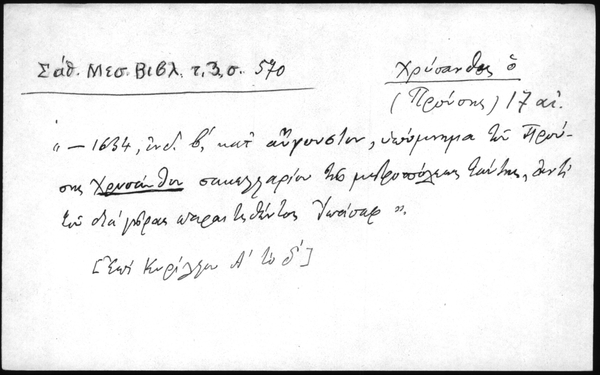 Σάθ. Μεσ. Βιβλ. τ. 3, σ. 570
Χρύσανθος ὁ
(Προύσης) 17 αἰ.
"— 1634, ἰνδ. β', κατ' αὔγουστον, ὑπόμνημα τοῦ Πρού-
σης Χρυσάνθου σακελλαρίου τῆς μητροπόλεως ταύτης, ἀντὶ
τοῦ διὰ γῆρας παραιτηθέντος Ἰωάσαφ".
[Ἐπὶ Κυρίλλου Α' τὸ δ']